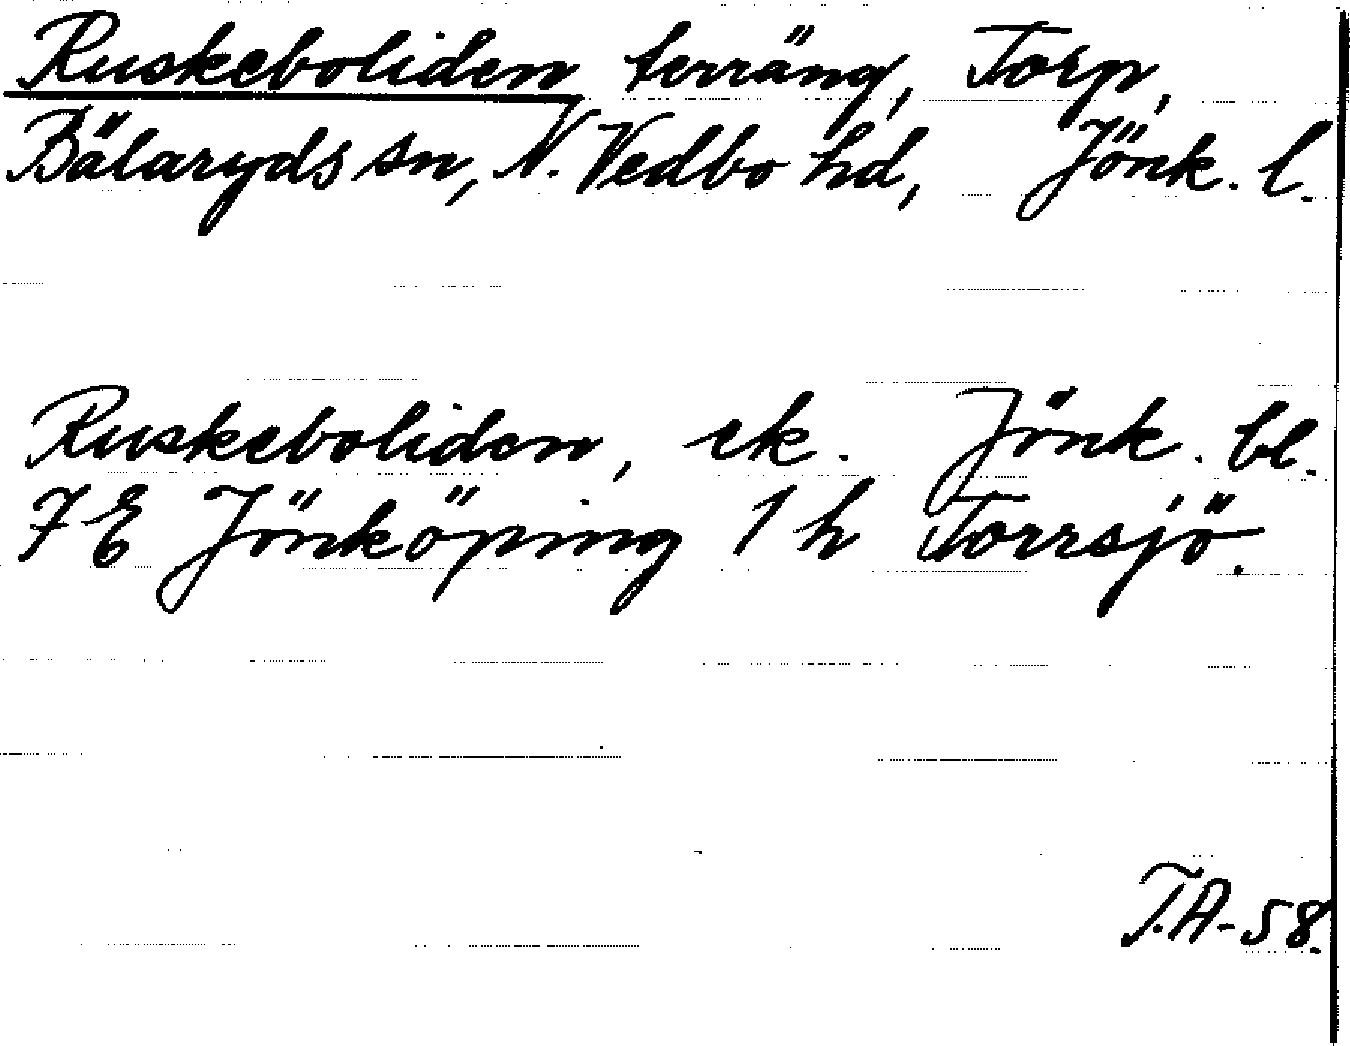 Ruskeboliden terräng, Torp,
Bälaryds sn, N. Vedbo hd, Jönk. l.
Ruskeboliden, ek. Jönk. bl.
7 E Jönköping 1 h Torrsjö.
T.A-58.